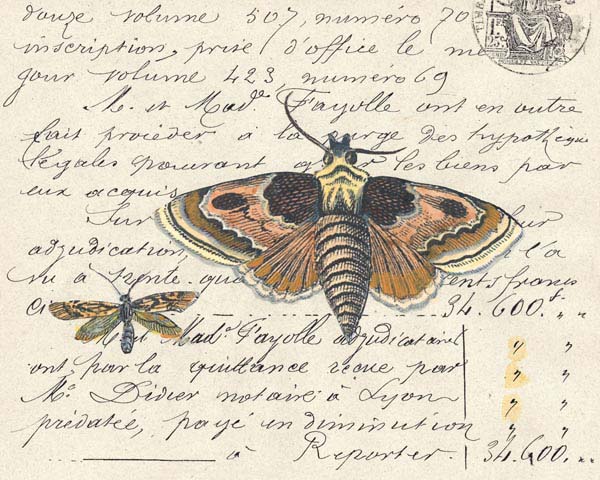 douze volume 507, numéro 70
inscription, prise d'office le
jour volume 423 numéro 69
M. et Madᵉ Fayolle ont en outre
fait procéder à la purge des hypothèque
légales pouvant les biens par
eux acquis
Sur
adjudication, l'a
vu à trente. ents francs
Ci 34.600.ᶠ „ „
Madᵉ Fayolle adjudicataires „ „
ont, par la quittance reçue par „ „
Mᵉ Didier notaire à Lyon „ „
prédatée, payé en diminution „ „
à Reporter. 34.600. „ „
TIMBR